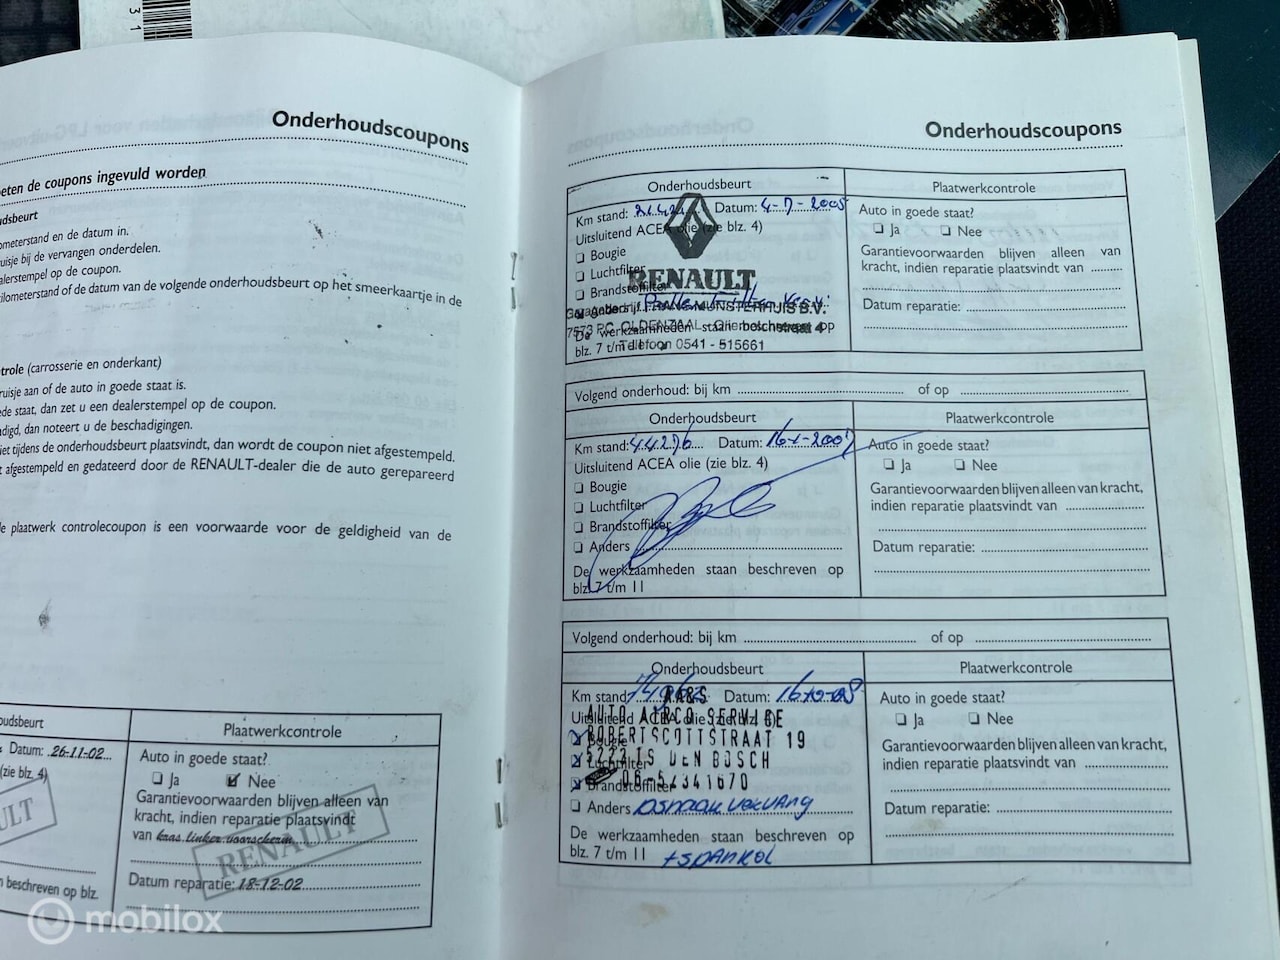 31
Onderhoudscoupons
eten de coupons ingevuld worden
udsbeurt
ometerstand en de datum in.
uisje bij de vervangen onderdelen.
alerstempel op de coupon.
kilometerstand of de datum van de volgende onderhoudsbeurt op het smeerkaartje in de
trole (carrosserie en onderkant)
ruisje aan of de auto in goede staat is.
ede staat, dan zet u een dealerstempel op de coupon.
adigd, dan noteert u de beschadigingen.
iet tijdens de onderhoudsbeurt plaatsvindt, dan wordt de coupon niet afgestempeld.
t afgestempeld en gedateerd door de RENAULT-dealer die de auto gerepareerd
de plaatwerk controlecoupon is een voorwaarde voor de geldigheid van de
oudsbeurt
Datum: 26-11-02
(zie blz. 4)
ULT
n beschreven op blz.
Plaatwerkcontrole
Auto in goede staat?
Ja Nee
Garantievoorwaarden blijven alleen van
kracht, indien reparatie plaatsvindt
van kras linker voorscherm
RENAULT
Datum reparatie: 18-12-02
Onderhoudscoupons
Onderhoudsbeurt
Km stand: Datum: 4-7-2005
Uitsluitend ACEA olie (zie blz. 4)
Bougie
Luchtfilter
RENAULT
Brandstoffilter
Anders
MUNSTERHUIS B.V.
7573 PC OLDENZAAL
De werkzaamheden staan beschreven op
blz. 7 t/m 11
Telefoon 0541 - 515661
Plaatwerkcontrole
Auto in goede staat?
Ja Nee
Garantievoorwaarden blijven alleen van
kracht, indien reparatie plaatsvindt van
Datum reparatie:
Volgend onderhoud: bij km of op
Onderhoudsbeurt
Km stand: 44276 Datum:
Uitsluitend ACEA olie (zie blz. 4)
Bougie
Luchtfilter
Brandstoffilter
Anders
De werkzaamheden staan beschreven op
blz. 7 t/m 11
Plaatwerkcontrole
Auto in goede staat?
Ja Nee
Garantievoorwaarden blijven alleen van kracht,
indien reparatie plaatsvindt van
Datum reparatie:
Volgend onderhoud: bij km of op
Onderhoudsbeurt
Km stand: Datum: 16-10-08
Uitsluitend ACEA olie (zie blz. 4)
Bougie
Luchtfilter
Brandstoffilter
AARS
AUTO AIRCO SERVICE
ROBERTSCOTTSTRAAT 19
DEN BOSCH
06-52341670
Anders
De werkzaamheden staan beschreven op
blz. 7 t/m 11
Plaatwerkcontrole
Auto in goede staat?
Ja Nee
Garantievoorwaarden blijven alleen van kracht,
indien reparatie plaatsvindt van
Datum reparatie:
mobilox